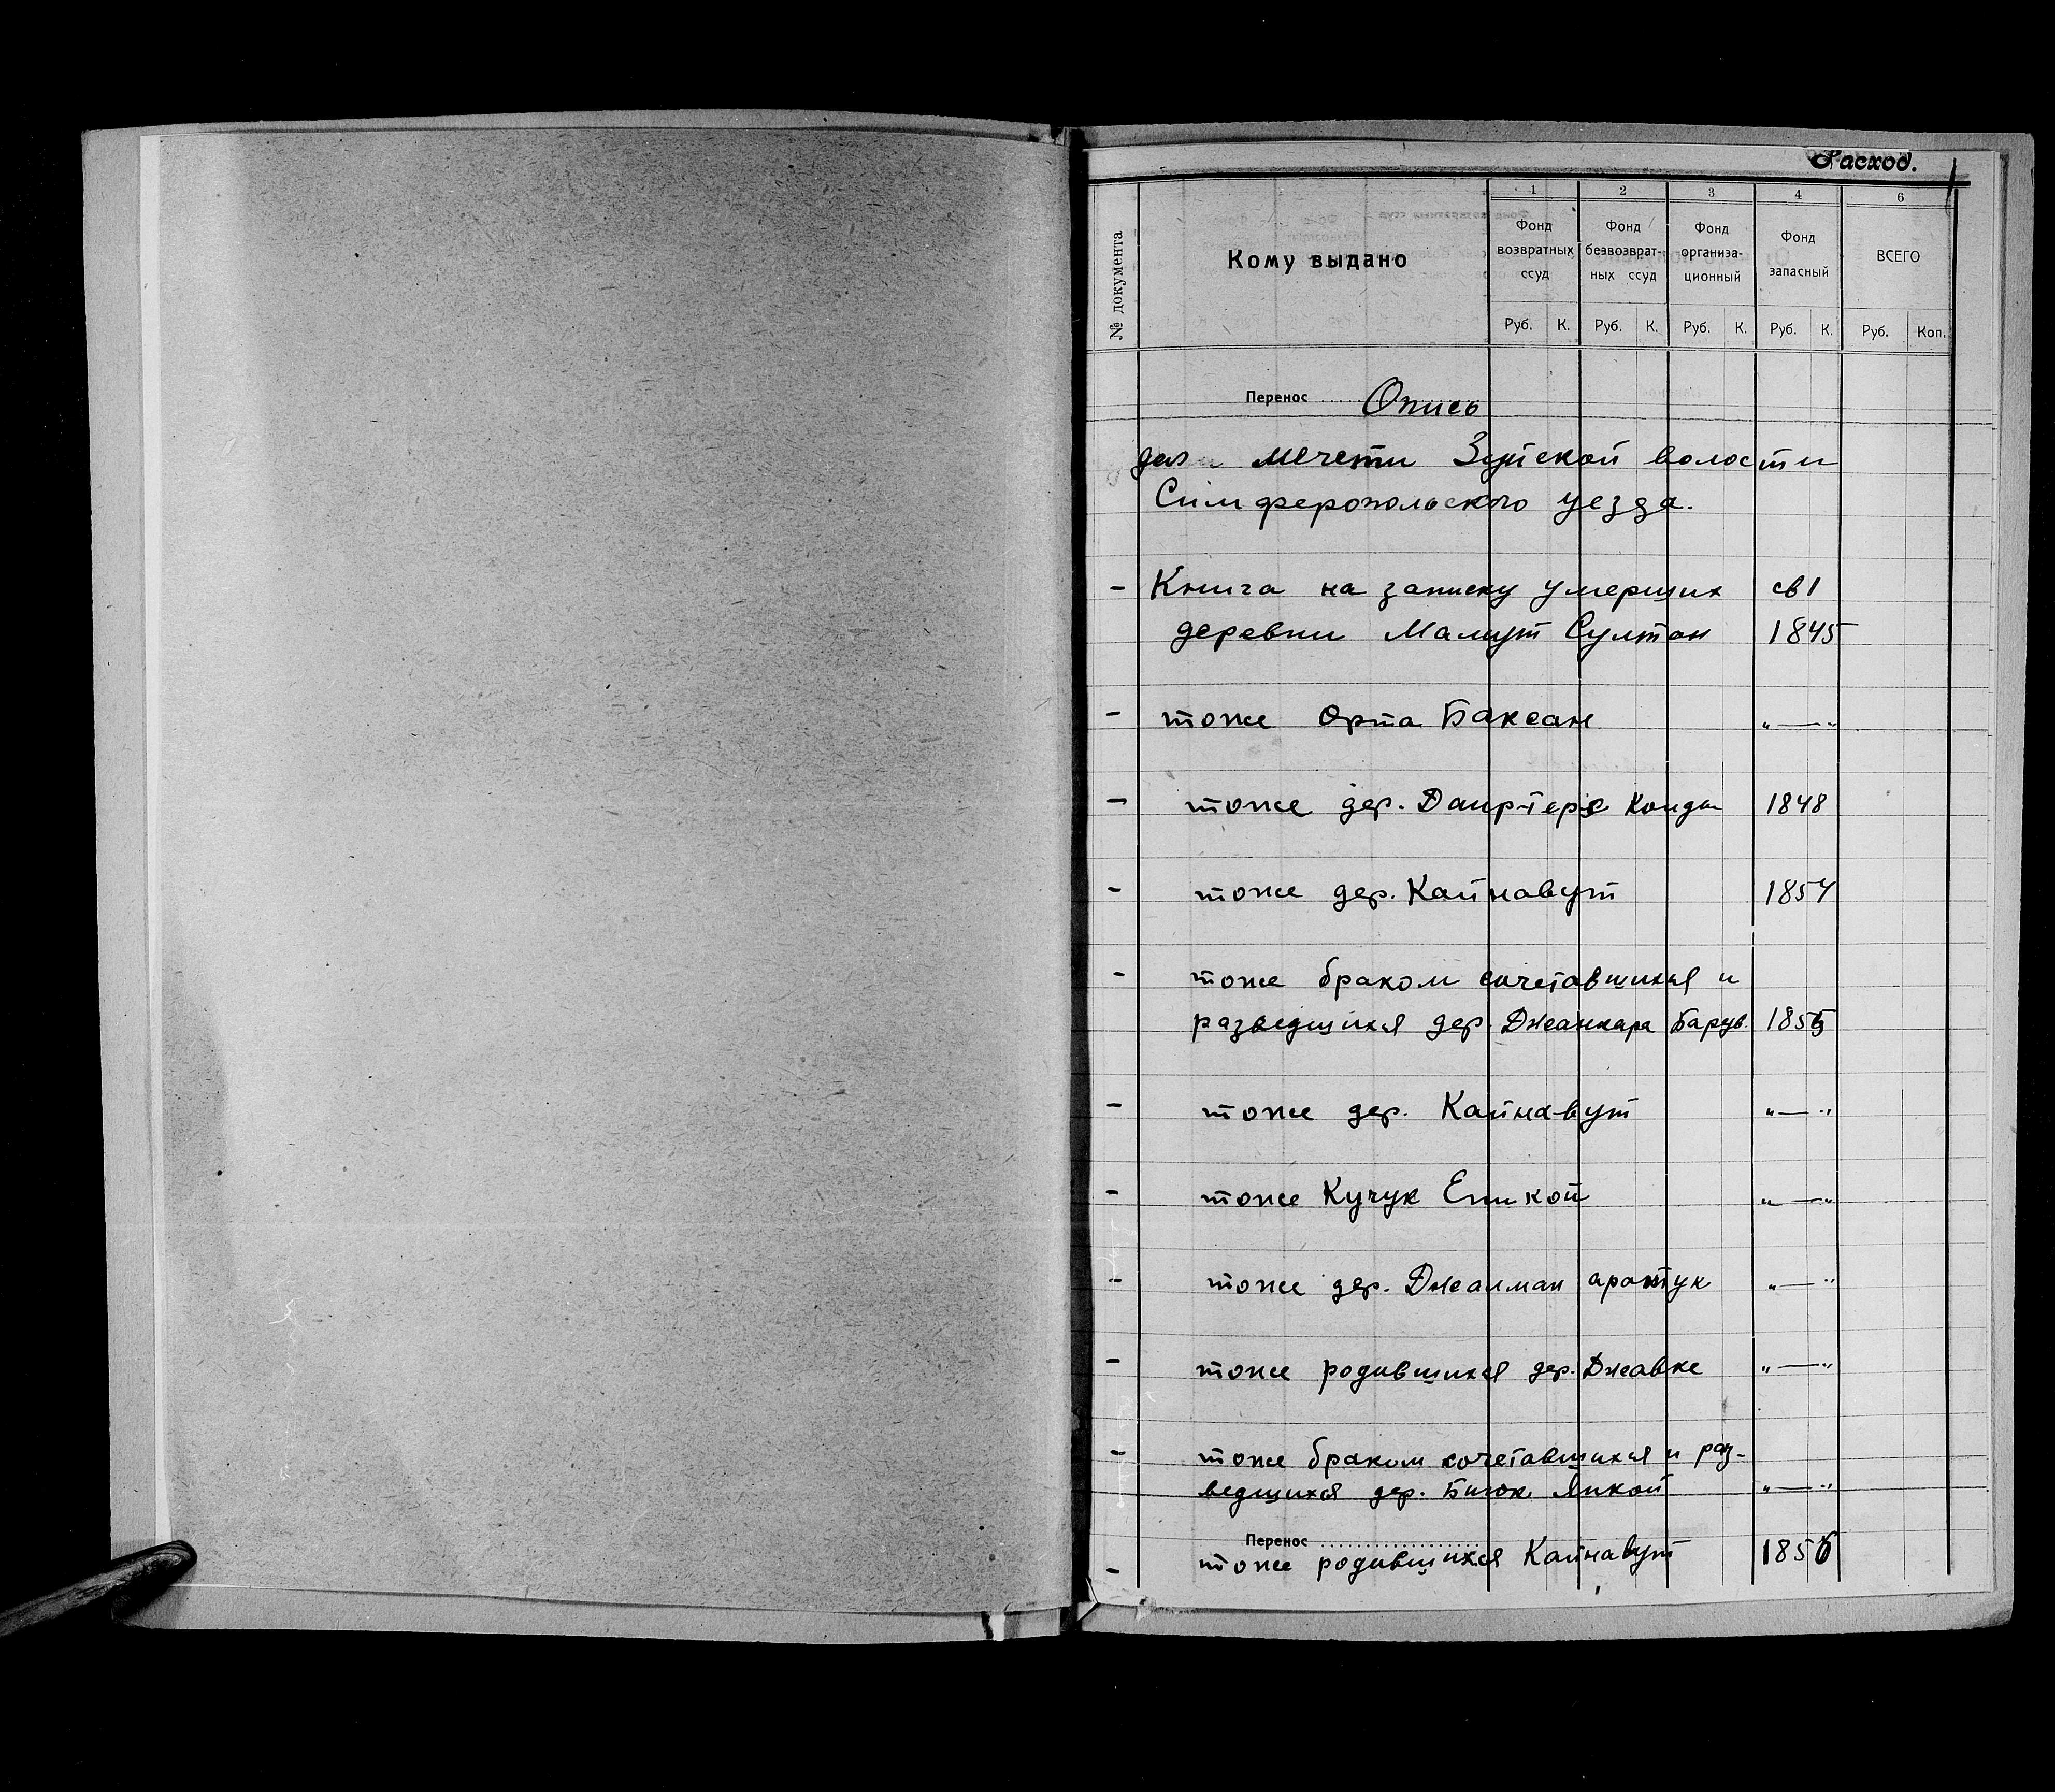 Расход.
№ документа
Кому выдано
1 2 3 4 6
Фонд возвратных ссуд
Фонд безвозврат-ных ссуд
Фонд организа-ционный
Фонд запасный
ВСЕГО
Руб. К. Руб. К. Руб. К. Руб. К. Руб. Коп.
Перенос ...... Опись
дел мечети Зуйской волости
Симферопольского уезда.
– Книга на записку умерших св 1
деревни Мамут Султан 1845
– тоже Орта Баксан „—„
– тоже дер. Даир-Тере Конды 1848
– тоже дер. Кайнавут 1854
– тоже браком сочетавшихся и
разведшихся дер. Джанкара Барув. 1855
– тоже дер. Кайнавут „—„
– тоже Кучук Еникой „—„
– тоже дер. Джалман аратук „—„
– тоже родившихся дер. Джавке „—„
– тоже браком сочетавшихся и раз-
ведшихся дер. Биюк Яикой „—„
Перенос ......
– тоже родившихся Кайнавут 1856